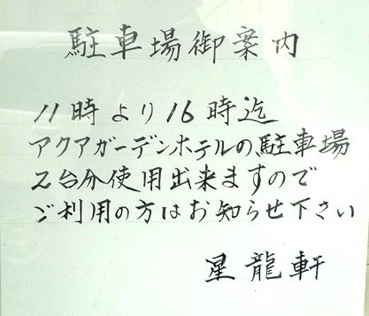 駐車場御案内
11時より16時迄
アクアガーデンホテルの駐車場
2台分使用出来ますので
ご利用の方はお知らせ下さい
星龍軒